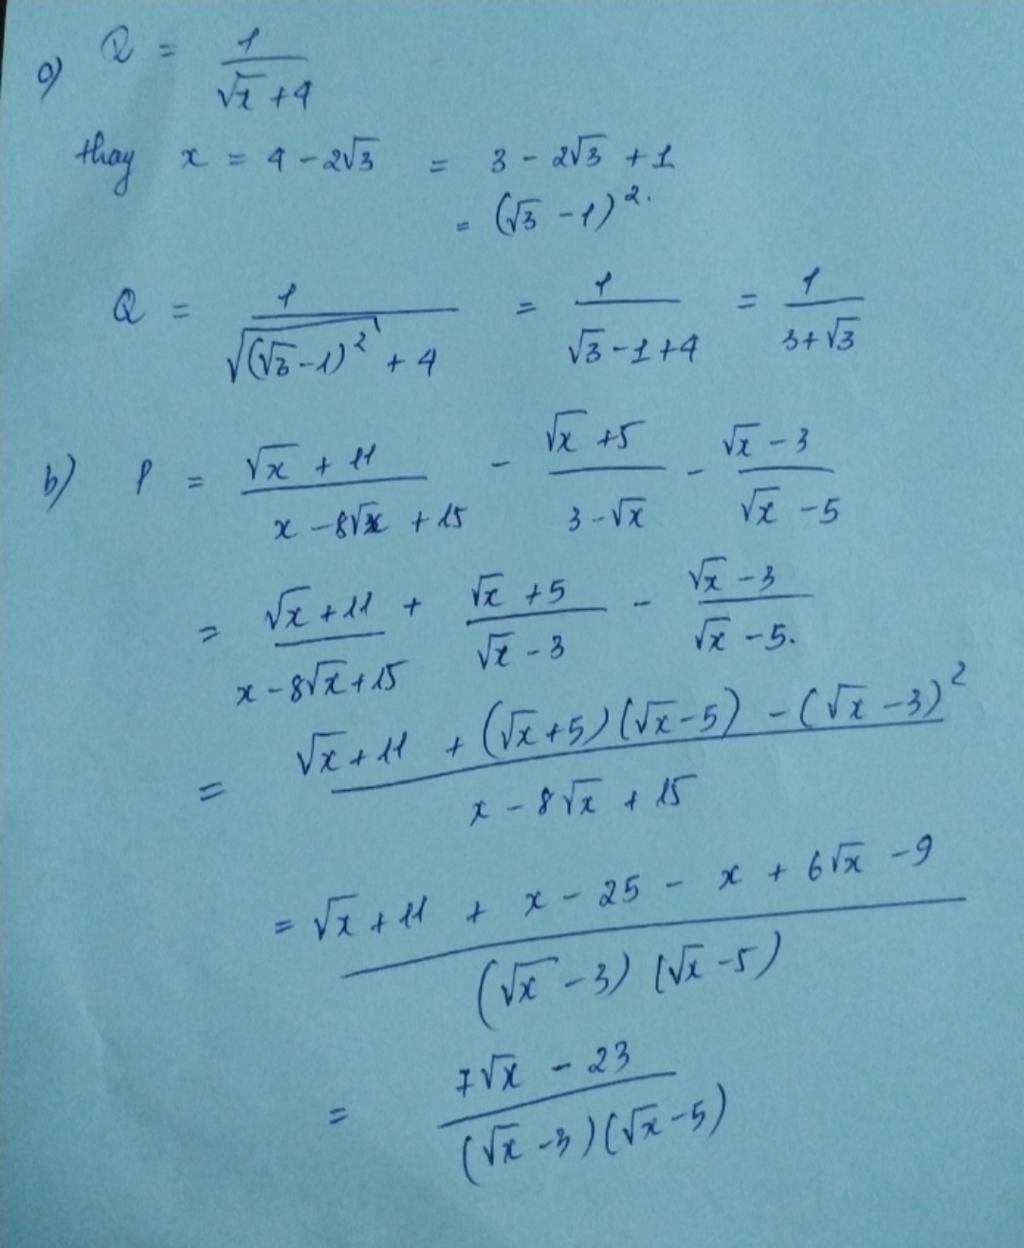 a) Q = 1/(√x + 4)
thay x = 4 - 2√3 = 3 - 2√3 + 1
= (√3 - 1)².
Q = 1/(√((√3-1)²) + 4) = 1/(√3 - 1 + 4) = 1/(3 + √3)
b) P = (√x + 11)/(x - 8√x + 15) - (√x + 5)/(3 - √x) - (√x - 3)/(√x - 5)
= (√x + 11)/(x - 8√x + 15) + (√x + 5)/(√x - 3) - (√x - 3)/(√x - 5).
= (√x + 11 + (√x + 5)(√x - 5) - (√x - 3)²)/(x - 8√x + 15)
= (√x + 11 + x - 25 - x + 6√x - 9)/((√x - 3)(√x - 5))
= (7√x - 23)/((√x - 3)(√x - 5))